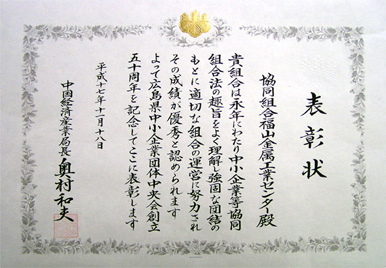 表彰状
協同組合福山金属工業センター殿
貴組合は永年にわたり中小企業等協同
組合法の趣旨をよく理解し強固な団結の
もとに適切な組合の運営に努力され
その成績が優秀と認められます
よって広島県中小企業団体中央会創立
五十周年を記念してここに表彰します
平成十七年十一月十八日
中国経済産業局長 奥村和夫